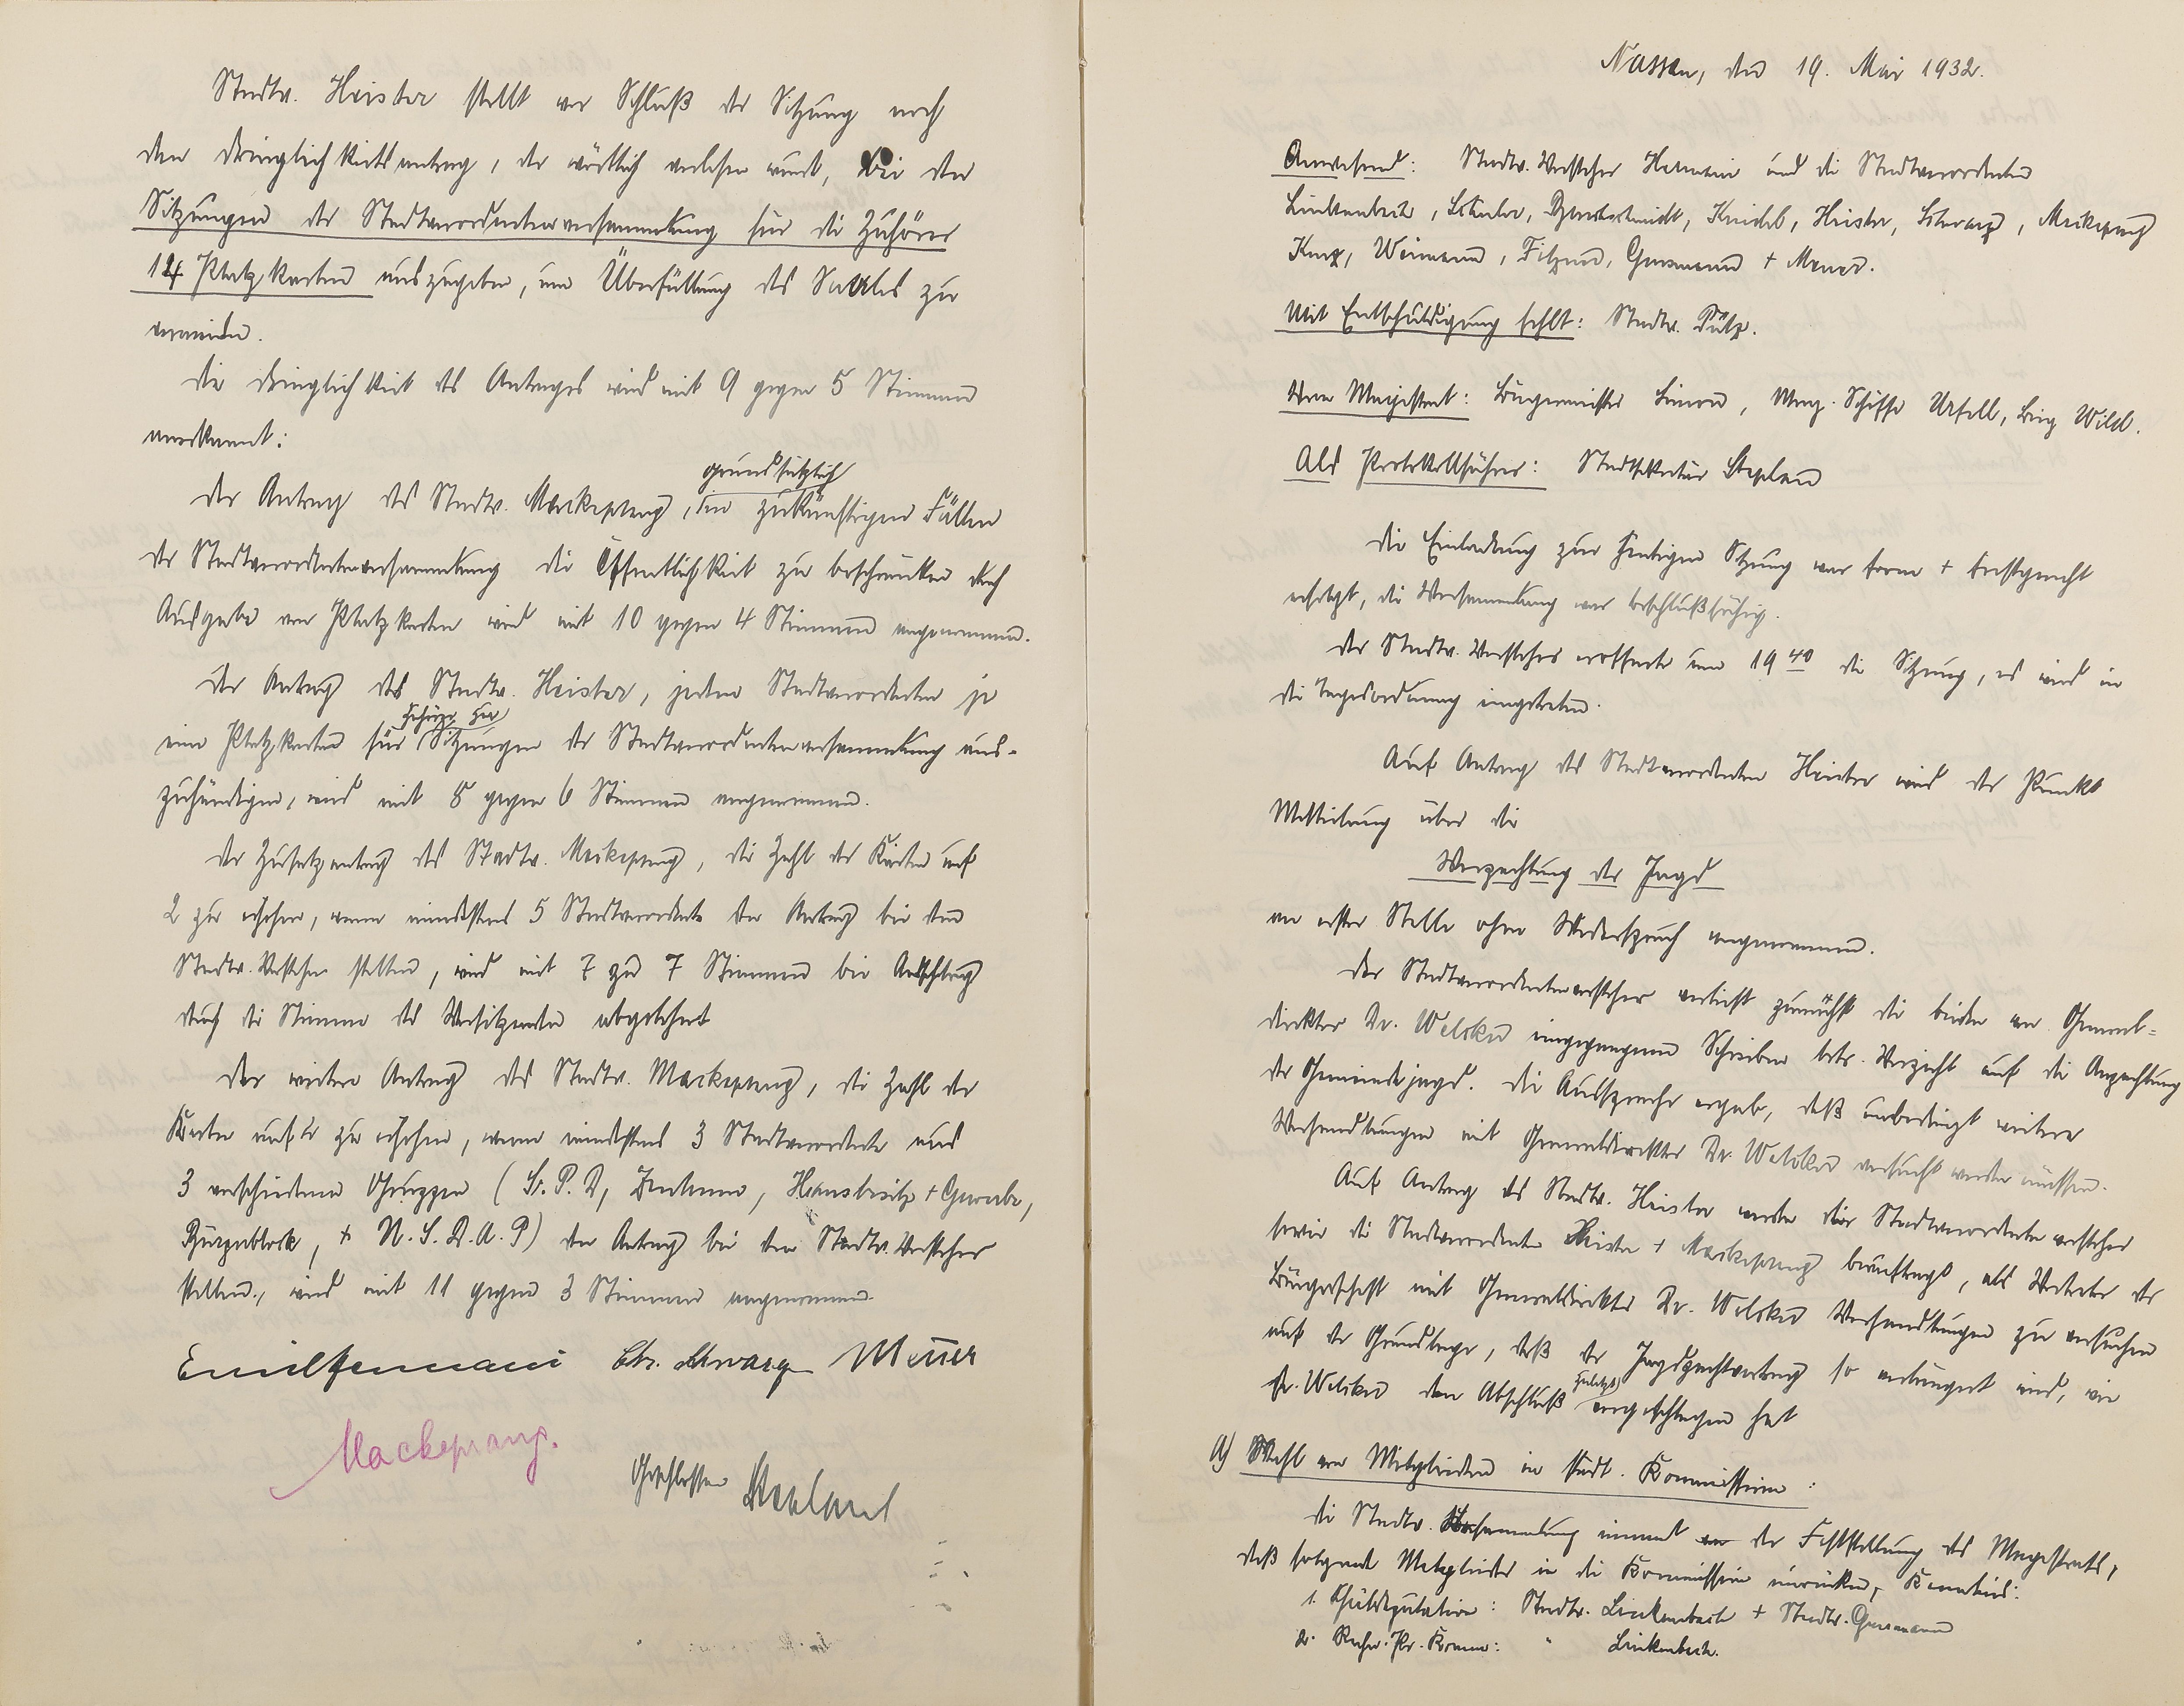 Stadtv. Heister stellt vor Schluß der Sitzung noch
den Dringlichkeitsantrag, der wörtlich verlesen wurde, bei den
Sitzungen der Stadtverordnetenversammlung für die Zuhörer
14 Platzkarten auszugeben, um Überfüllung des Saales zu
vermeiden.
Die Dringlichkeit des Antrages wird mit 9 gegen 5 Stimmen
anerkannt:
grundsätzlich
Der Antrag des Stadtv. Mackeprang, in zukünftigen Fällen
der Stadtverordnetenversammlung die Öffentlichkeit zu beschränken durch
Ausgabe von Platzkarten wird mit 10 gegen 4 Stimmen angenommen.
Der Antrag des Stadtv. Heister, jedem Stadtverordneten je
Zuhörer zur
eine Platzkarten für Sitzungen der Stadtverordnetenversammlung aus-
zuhändigen, wird mit 8 gegen 6 Stimmen angenommen.
Der Zusatzantrag des Stadtv. Mackeprang, die Zahl der Karten auf
2 zu erhöhen, wenn mindestens 5 Stadtverordnete den Antrag bei dem
Stadtv. Vorsteher stellen, wird mit 7 zu 7 Stimmen bei Ausschlag
durch die Stimme des Vorsitzenden abgelehnt
Der weitere Antrag des Stadtv. Mackeprang, die Zahl der
Karten auf 2 zu erhöhen, wenn mindestens 3 Stadtverordnete aus
3 verschiedenen Gruppen (S. P. D, Zentrum, Hausbesitz + Gewerbe,
Bürgerblock, + N. S. D. A. P) den Antrag bei dem Stadtv. Vorsteher
stellen, wird mit 11 gegen 3 Stimmen angenommen.
Emil Hermani Chr. Schwarz Meuer
Mackeprang.
Geschlossen Stephan
Nassau, den 19. Mai 1932.
Anwesend: Stadtv. Vorsteher Hermani und die Stadtverordneten
Linkenbach, Schuler, Kneidel, Heister, Schwarz, Mackeprang
Kurz, Weimann, Filzen, Grossmann + Meuer.
Mit Entschuldigung fehlt: Stadtv. Pütz.
Vom Magistrat: Bürgermeister Simon, Mag. Schöffe Unfell, Beig Wild.
Als Protokollführer: Stadtsekretär Stephan
Die Einladung zur heutigen Sitzung war form + fristgerecht
erfolgt, die Versammlung war beschlußfähig.
Der Stadtv. Vorsteher eröffnete um 19 40 die Sitzung, es wird in
die Tagesordnung eingetreten.
Auf Antrag des Stadtverordneten Heister wird der Punkt
Mitteilung über die
Verpachtung der Jagd
an erster Stelle ohne Widerspruch angenommen.
Der Stadtverordnetenvorsteher verliest zunächst die beiden von General-
direktor Dr. Welcker eingegangenen Schreiben betr. Verzicht auf die Anpachtung
der Gemeindejagd. Die Aussprache ergab, daß unbedingt weitere
Verhandlungen mit Generaldirektor Dr. Welcker versucht werden müssen.
Auf Antrag des Stadtv. Heister werden der Stadtverordnetenvorsteher
sowie die Stadtverordneten Heister + Mackeprang beauftragt, als Vertreter der
Bürgerschaft mit Generaldirektor Dr. Welcker Verhandlungen zu versuchen
auf der Grundlage, daß der Jagdpachtvertrag so verlängert wird, wie
zuletzt
Dr. Welcker den Abschluß vorgeschlagen hat
A) Wahl von Mitgliedern in städt. Kommissionen:
Die Stadtv. Versammlung nimmt von der Feststellung des Magistrats,
daß folgende Mitglieder in die Kommission einrücken, Kenntnis:
1. Schuldeputation: Stadtv. Linkenbach + Stadtv. Grossmann
2. Rechn. Pr. Komm: " Linkenbach.